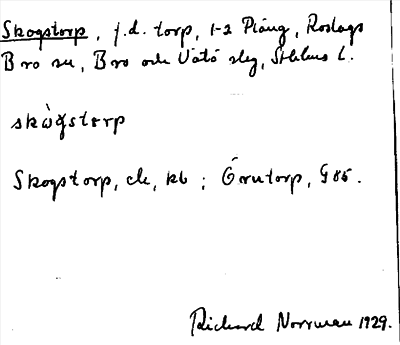 Skogstorp, f.d. torp, 1-2 Pläng, Roslags
Bro sn, Bro och Vätö slg, Sthlms l.
skògstorp
Skogstorp, ck, kb ; Örutorp, G85.
Richard Norrman 1929.